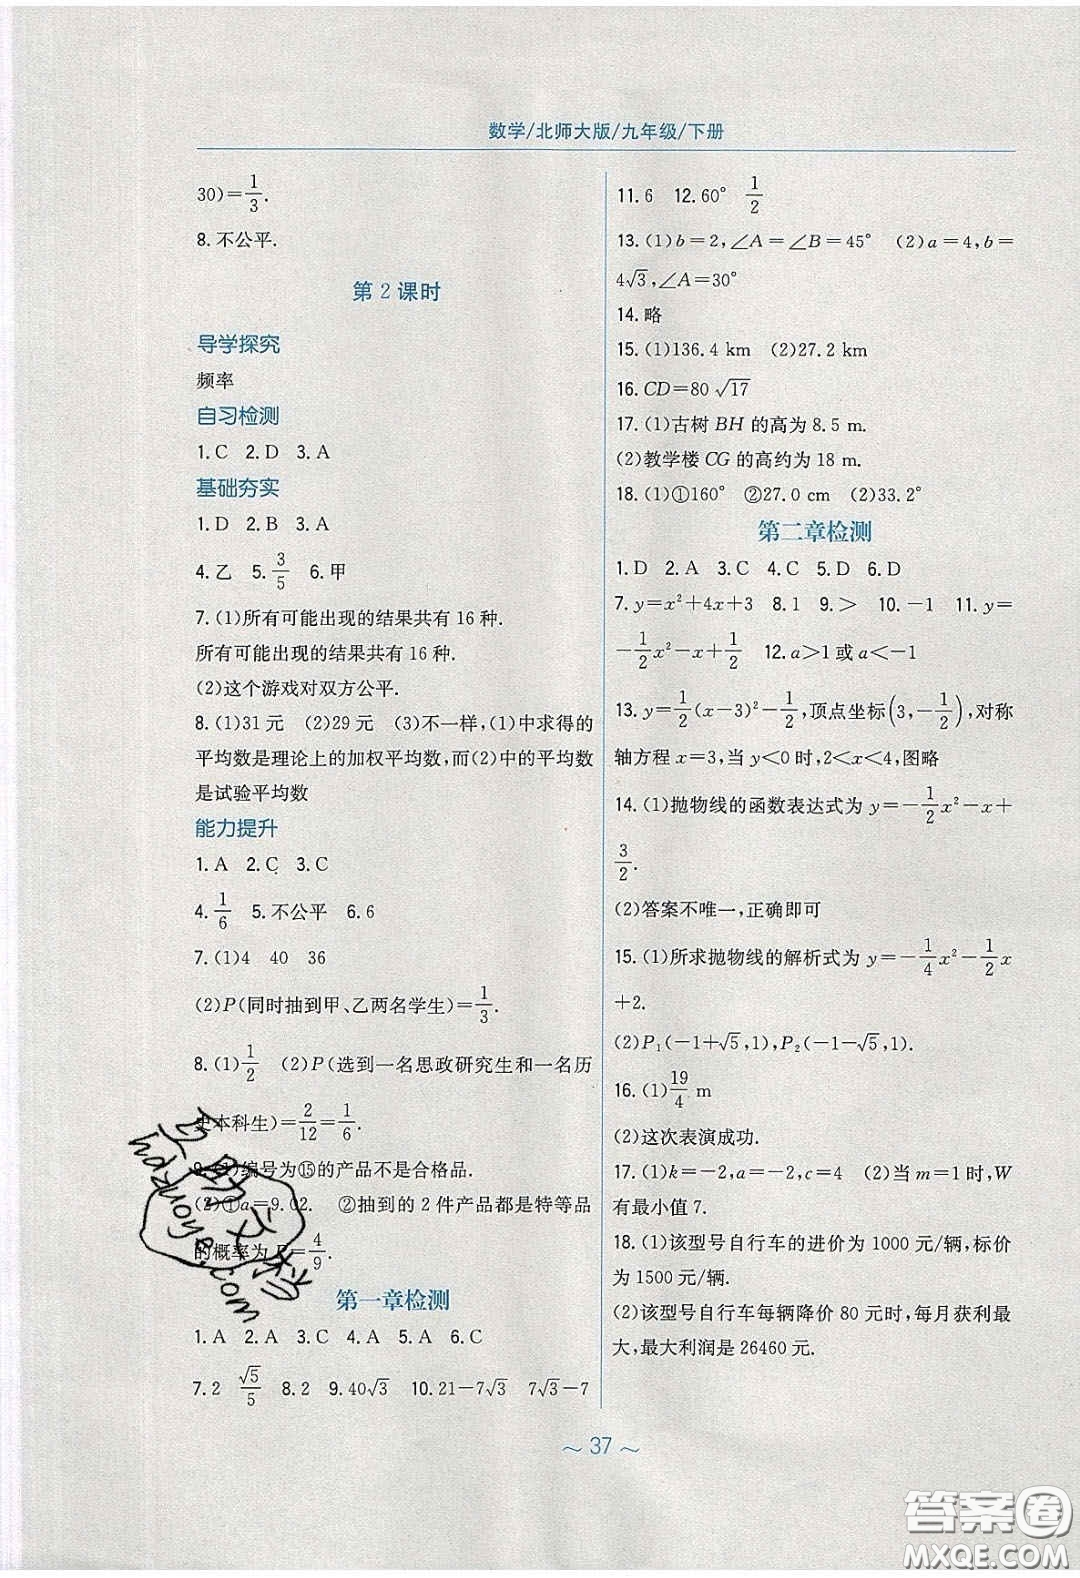 数学/北师大版/九年级/下册
30)=1/3.
8.不公平.
第2课时
导学探究
频率
自习检测
1.C 2.D 3.A
基础夯实
1.D 2.B 3.A
4.乙 5.3/5 6.甲
7.(1)所有可能出现的结果共有16种.
所有可能出现的结果共有16种.
(2)这个游戏对双方公平.
8.(1)31元 (2)29元 (3)不一样,(1)中求得的
平均数是理论上的加权平均数,而(2)中的平均数
是试验平均数
能力提升
1.A 2.C 3.C
4.1/6 5.不公平 6.6
7.(1)4 40 36
(2)P(同时抽到甲、乙两名学生)=1/3.
8.(1)1/2 (2)P(选到一名思政研究生和一名历
史本科生)=2/12=1/6.
9.(1)编号为⑮的产品不是合格品.
(2)①a=9.02. ②抽到的2件产品都是特等品
的概率为P=4/9.
第一章检测
1.A 2.A 3.C 4.A 5.A 6.C
7.2 √5/5 8.2 9.40√3 10.21-7√3 7√3-7
11.6 12.60° 1/2
13.(1)b=2,∠A=∠B=45° (2)a=4,b=
4√3,∠A=30°
14.略
15.(1)136.4 km (2)27.2 km
16.CD=80√17
17.(1)古树BH的高为8.5 m.
(2)教学楼CG的高约为18 m.
18.(1)①160° ②27.0 cm (2)33.2°
第二章检测
1.D 2.A 3.C 4.C 5.D 6.D
7.y=x²+4x+3 8.1 9.> 10.-1 11.y=
-1/2x²-x+1/2 12.a>1或a<-1
13.y=1/2(x-3)²-1/2,顶点坐标(3,-1/2),对称
轴方程x=3,当y<0时,2<x<4,图略
14.(1)抛物线的函数表达式为y=-1/2x²-x+
3/2.
(2)答案不唯一,正确即可
15.(1)所求抛物线的解析式为y=-1/4x²-1/2x
+2.
(2)P₁(-1+√5,1),P₂(-1-√5,1).
16.(1)19/4 m
(2)这次表演成功.
17.(1)k=-2,a=-2,c=4 (2)当m=1时,W
有最小值7.
18.(1)该型号自行车的进价为1000元/辆,标价
为1500元/辆.
(2)该型号自行车每辆降价80元时,每月获利最
大,最大利润是26460元.
~ 37 ~
答案圈
MXQE.COM